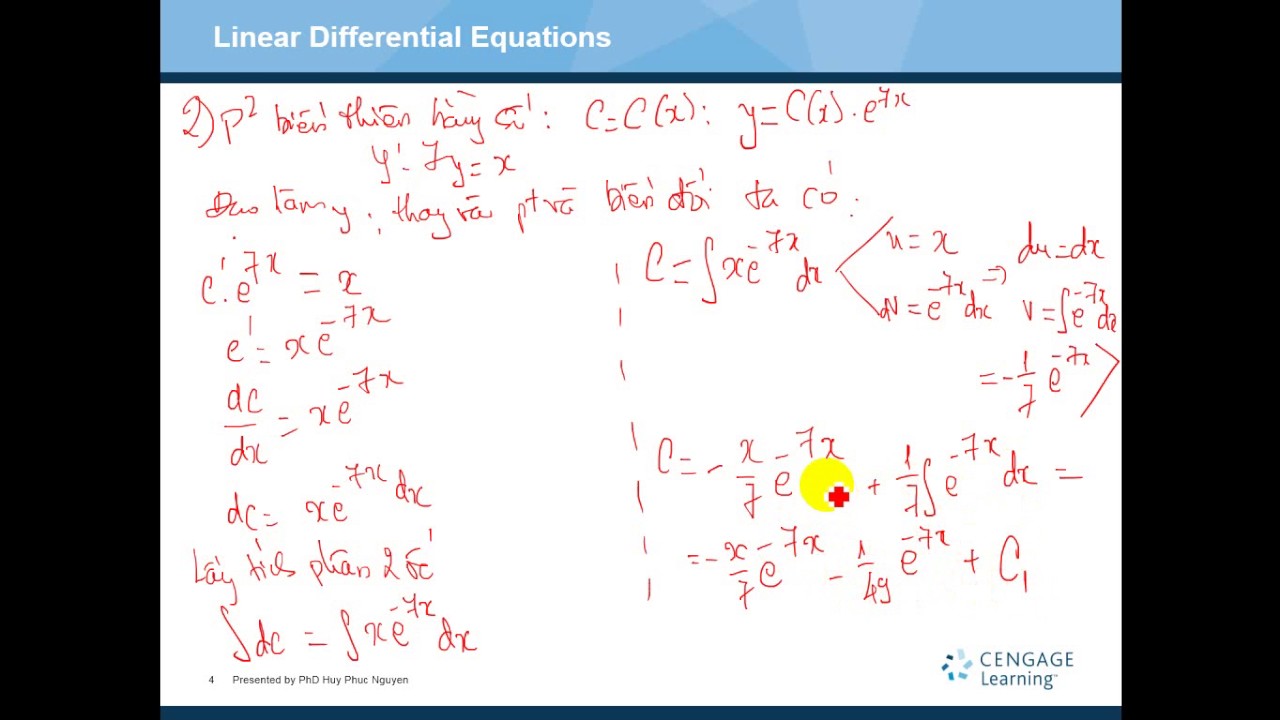 Linear Differential Equations
2) P² biến thiên hằng số : C = C(x) : y = C(x) . e^{7x}
y' - 7y = x
Đạo hàm y, thay vào pt và biến đổi ta có :
C' . e^{7x} = x
C' = x e^{-7x}
dC/dx = x e^{-7x}
dC = x e^{-7x} dx
Lấy tích phân 2 vế
∫ dC = ∫ x e^{-7x} dx
C = ∫ x e^{-7x} dx
u = x
du = dx
dV = e^{-7x} dx ⇒
V = ∫ e^{-7x} dx
= - 1/7 e^{-7x}
C = - x/7 e^{-7x} + 1/7 ∫ e^{-7x} dx =
= - x/7 e^{-7x} - 1/49 e^{-7x} + C₁
4 Presented by PhD Huy Phuc Nguyen
CENGAGE
Learning™